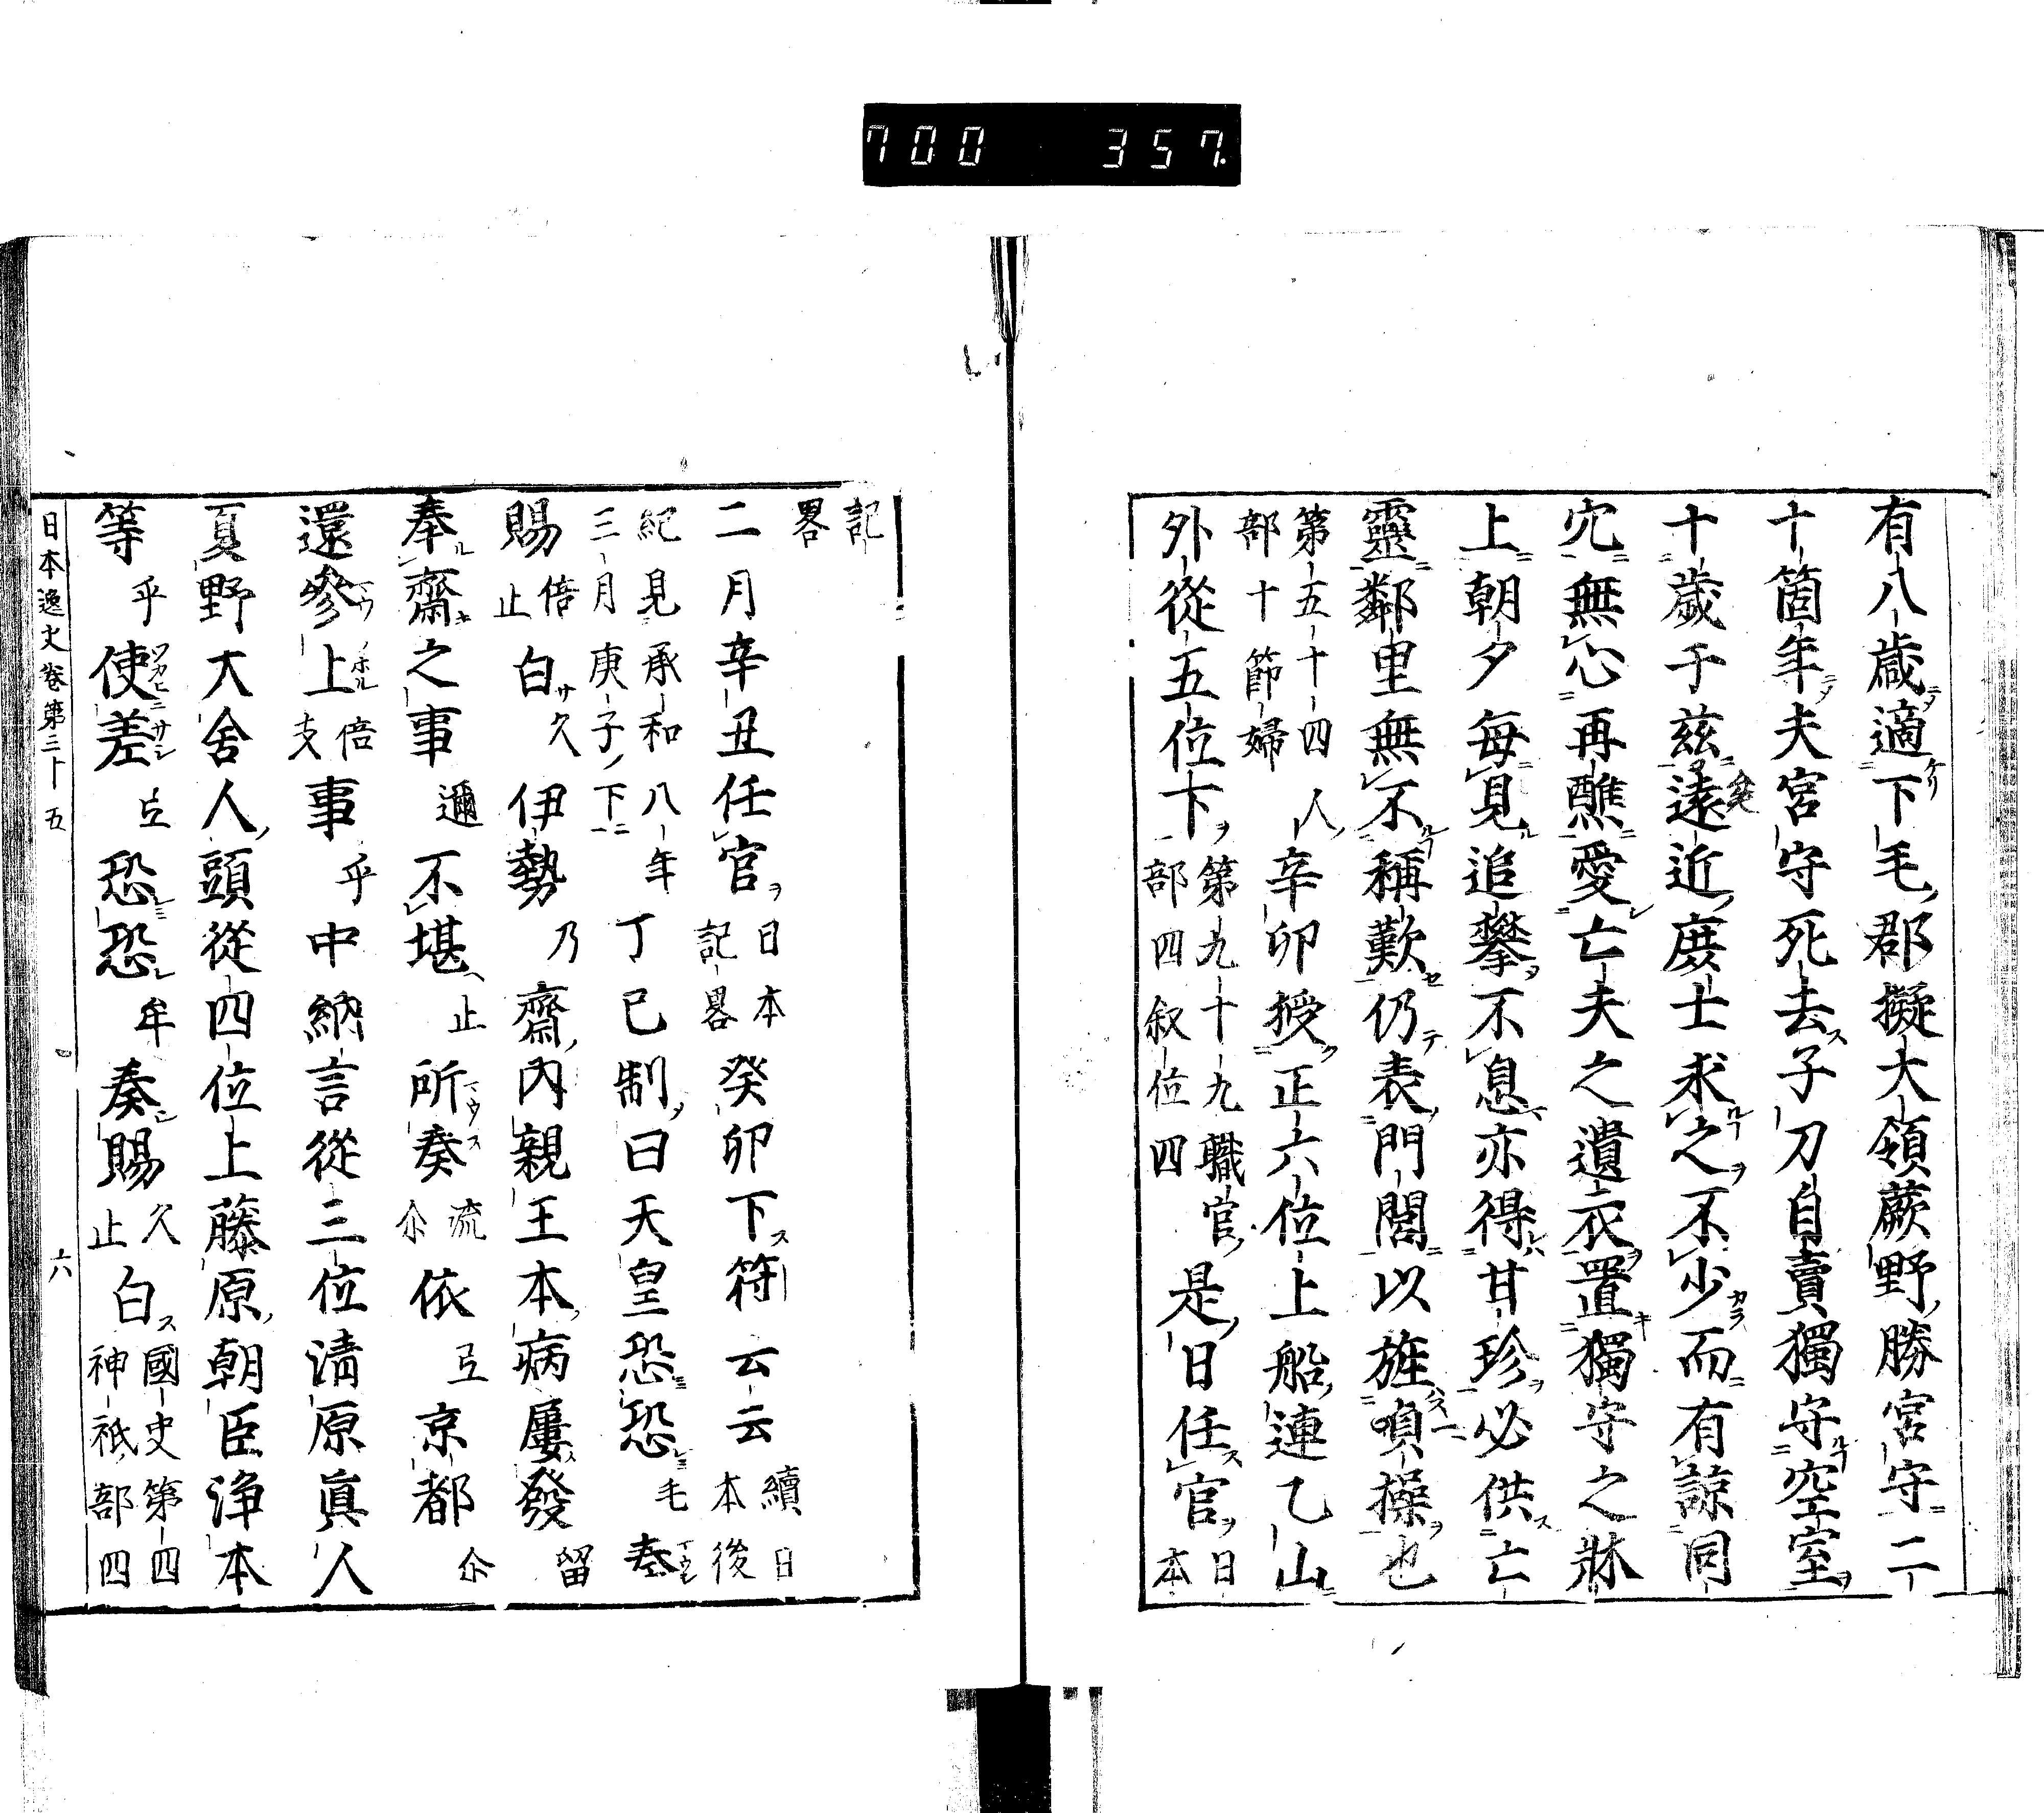 700 357.
有八歳適下毛郡擬大領蕨野勝宮守二
十箇年夫宮守死去子刀自賣獨守空室
十歳于兹遠近庶士求之不少而有諒同
穴無心再醮愛亡夫之遺衣置獨守之牀
上朝夕毎見追攀不息亦得甘珍必供亡
靈鄰里無不稱歎仍表門閭以旌嘖操也
第五十四人
部十節婦
辛卯授正六位上船連乙山
外從五位下
第九十九職官
部四叙位四
是日任官
日
本
記
畧
二月辛丑任官
日本
記畧
癸卯下符云云
續日
本後
紀見承和八年
三月庚子下
丁巳制曰天皇恐恐
毛
奏
賜
倍
止
白
久
伊勢
乃
齋内親王本病屢發
留
奉齋之事
邇
不堪
止
所奏
流
尒
依
弖
京都
尒
還參上
倍
支
事
乎
中納言從三位清原眞人
夏野大舍人頭從四位上藤原朝臣浄本
等
乎
使差
弖
恐恐
牟
奏賜
久
止
白
國史第四
神祇部四
日本逸史卷第三十五
六